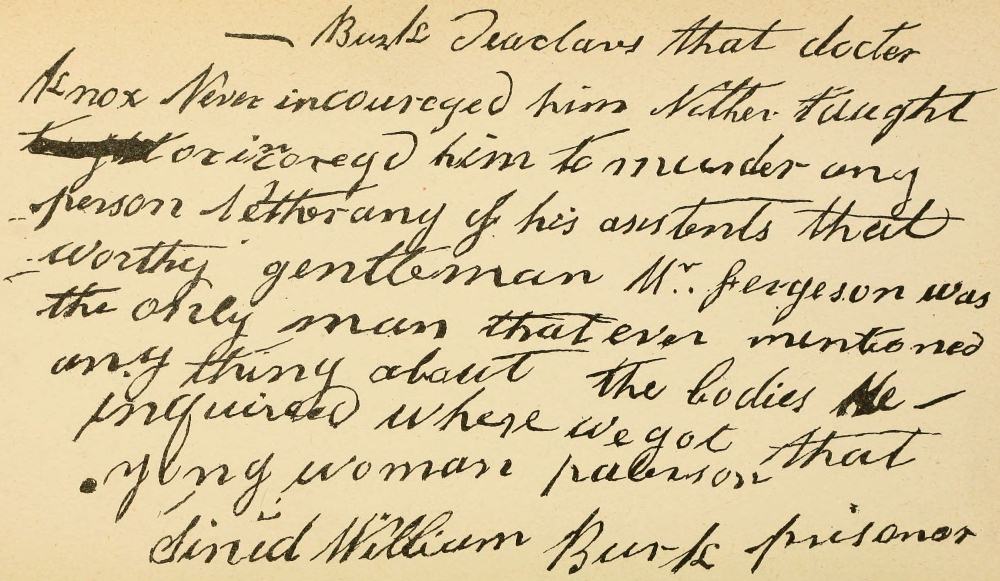 — Burk deaclars that docter
Knox Never incouraged him Nather taught
or incoregd him to murder any
person Nether any of his asistents that
worthy gentleman Mr. Fergeson was
the only man that ever mentioned
any thing about the bodies He —
inquired where we got that
yong woman paterson
Sinid William Burk prisoner